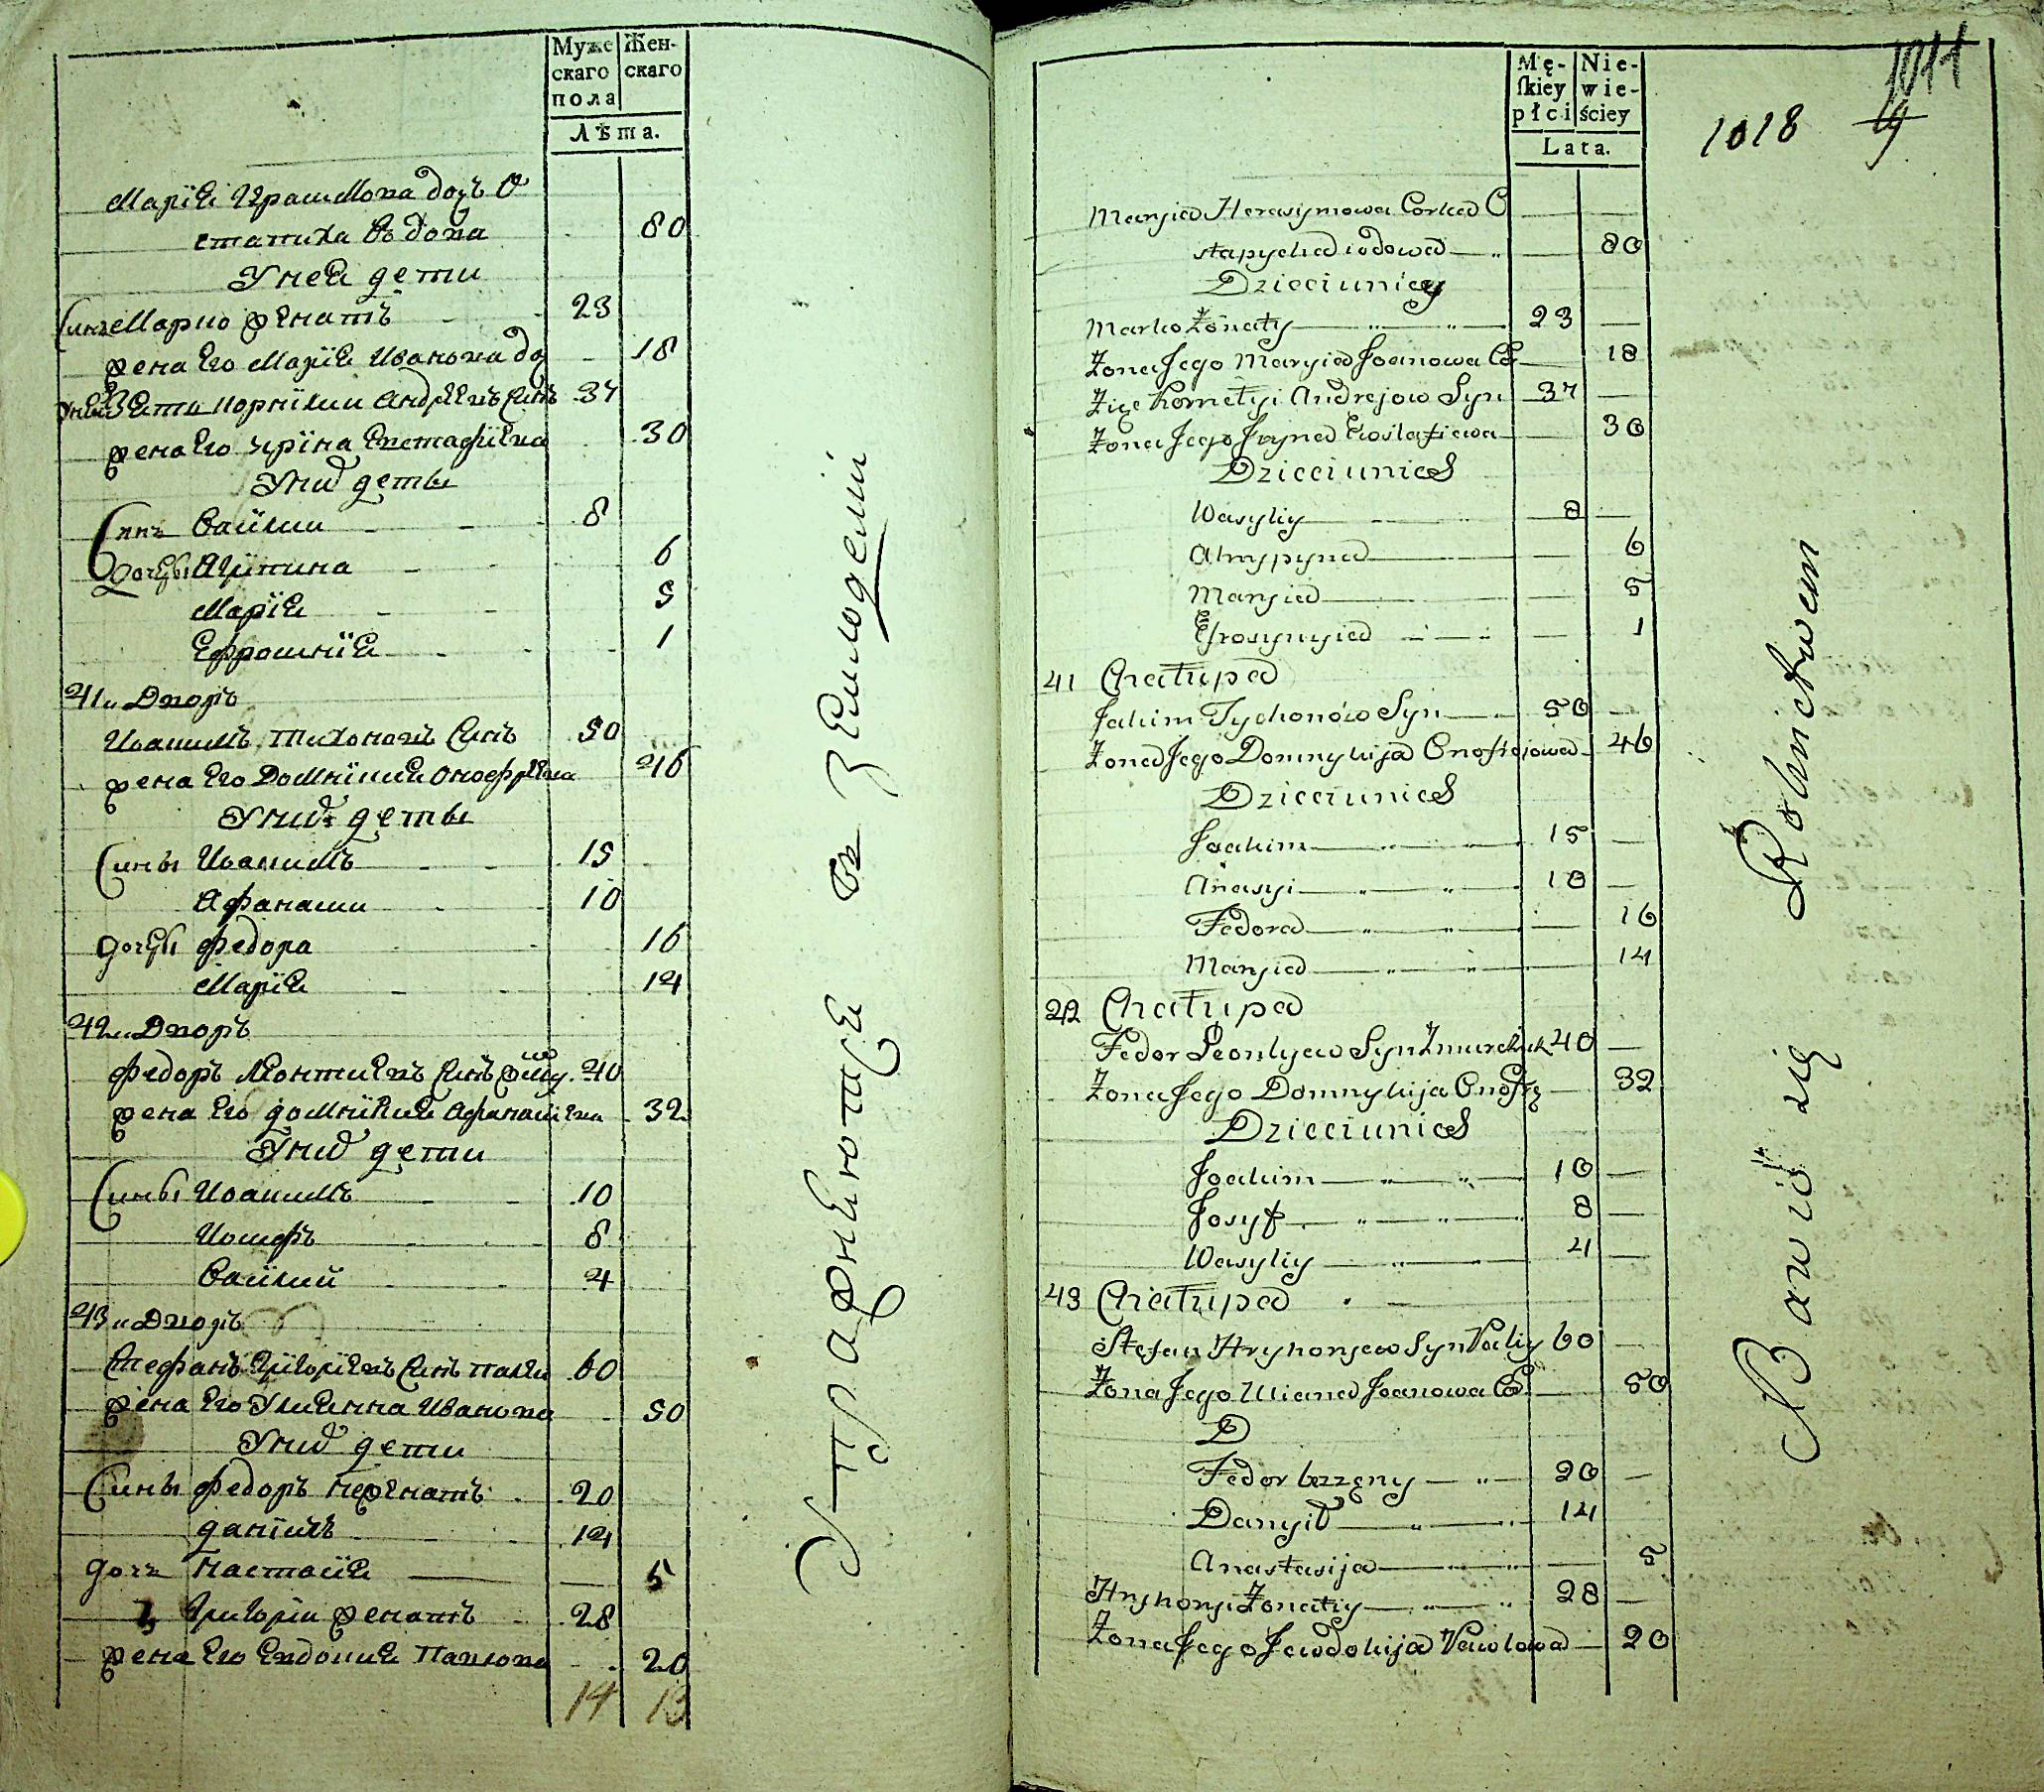 Муже Жен-
скаго скаго
пола
Лѣта.
Марїя Герасимова дочъ О
стапиха вдова 80
У неи дети
Синъ Марко женатъ 23
жена его Марїя Иванова до 18
зяти Корнїлии Андреевъ синъ 37
жена его Ирїна Евстафїева 30
У нихъ деты
Синъ Васїлии 8
дочери Агрїпина 6
Марїя 5
Ефросинїя 1
41и Дворъ
Иоакимъ Тихоновъ синъ 50
жена его Домнїкия Оноофрїева 46
У нихъ деты
Сины Иоакимъ 15
Афанасии 10
дочери Федора 16
Марїя 14
42и Дворъ
Федоръ Леонтиевъ синъ 40
жена его Домнїкия Афанасиева 32
У нихъ дети
Сины Иоакимъ 10
Иосифъ 8
Васїлий 4
43и Дворъ
Стефанъ Григорїевъ синъ Палїи 60
жена его Улиянна Иванова 50
У нихъ дети
Сины Федоръ нежинатъ 20
Данїилъ 14
дочъ Настасїя 5
3 Григорїи женатъ 28
жена его Евдокия Павлова 20
14 13
Упражнѣются въ Земледелїи
Mę- Nie-
ſkiey wie-
płci ściey
Lata.
1011
1018
Maryia Herasymowa Corka O
stapycha wdowa 80
Dzieci u niey
Marko Żonaty 23
Żona Jego Maryia Joanowa Co 18
Zięć Kornełyi Andrejow Syn 37
Żona Jego Iryna Ewstafiewa 30
Dzieci u nich
Wasyliy 8
Ahrypyna 6
Maryia 5
Efrosynyia 1
41 Chałupa
Jakim Tychonów Syn 50
Żona Jego Domnykija Onofrejowa 46
Dzieci u nich
Joakim 15
Afnasyi 10
Fedora 16
Maryia 14
42 Chałupa
Fedor Leontyew Syn Żmurchuk 40
Żona Jego Domnykija Onofrę 32
Dzieci u nich
Joakim 10
Josyf 8
Wasyliy 4
43 Chałupa
Stefan Hryhoryew Syn Paliy 60
Żona Jego Uliana Joanowa Co 50
D
Fedor bezżęny 20
Danyił 14
Anastasija 5
Hryhoryi Żonatiy 28
Żona Jego Jewdokija Pawlowa 20
Bawią się Rolnictwem